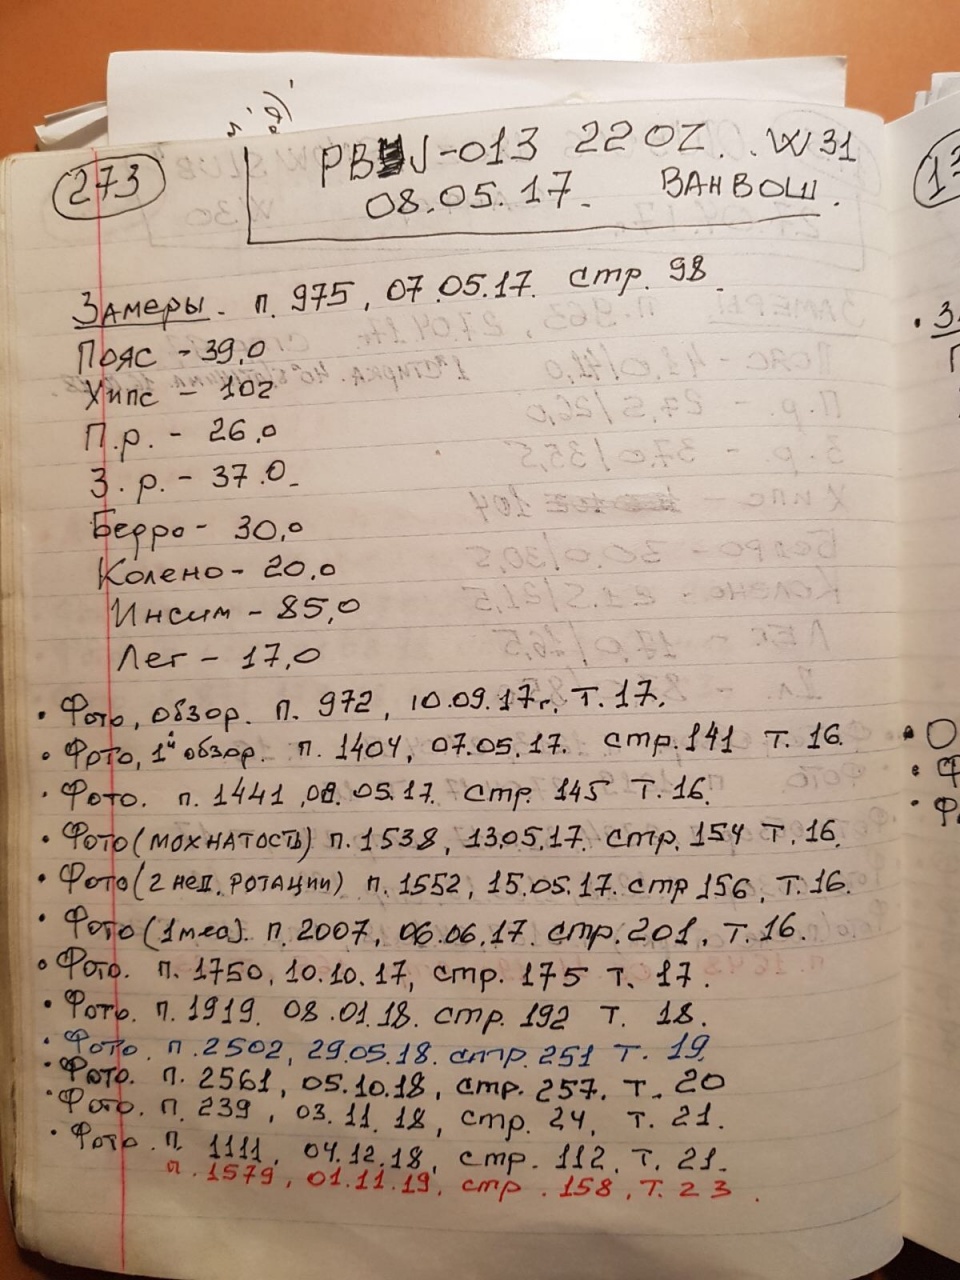 273
PBJ-013 22 OZ. W31
08.05.17. ВАНВОШ.
Замеры. п. 975, 07.05.17. стр. 98.
Пояс - 39,0
Хипс - 102
П.р. - 26,0
З.р. - 37.0.
Бедро - 30,0
Колено - 20,0
Инсим - 85,0
Лег - 17,0
• Фото, обзор. п. 972, 10.09.17г. Т. 17.
• Фото, 1й обзор. п. 1404, 07.05.17. стр. 141 Т. 16.
• Фото. п. 1441, 08.05.17. стр. 145 Т. 16.
• Фото (мохнатость) п. 1538, 13.05.17. стр. 154 Т. 16.
• Фото (2 нед. ротации) п. 1552, 15.05.17. стр 156, Т. 16.
• Фото (1 мес). п. 2007, 06.06.17. стр. 201, Т. 16.
• Фото. п. 1750, 10.10.17, стр. 175 Т. 17.
• Фото. п. 1919. 08.01.18. стр. 192 Т. 18.
• Фото. п. 2502, 29.05.18. стр. 251 Т. 19.
• Фото. п. 2561, 05.10.18, стр. 257. Т. 20
• Фото. п. 239, 03.11.18, стр. 24, Т. 21.
• Фото. п. 1111, 04.12.18, стр. 112, Т. 21.
п. 1579, 01.11.19, стр. 158, Т. 23.